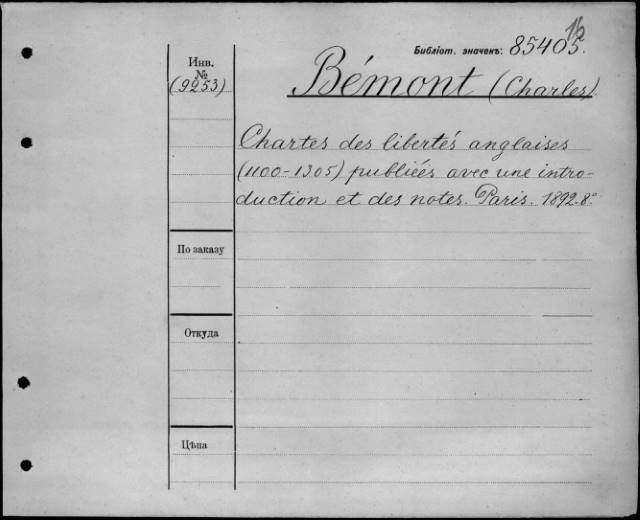 16
Библіот. значекъ: 85405.
Инв.
№
(9253)
Bémont (Charles)
Chartes des libertés anglaises
(1100-1305) publiées avec une intro-
duction et des notes. Paris. 1892. 8°
По заказу
Откуда
Цѣна